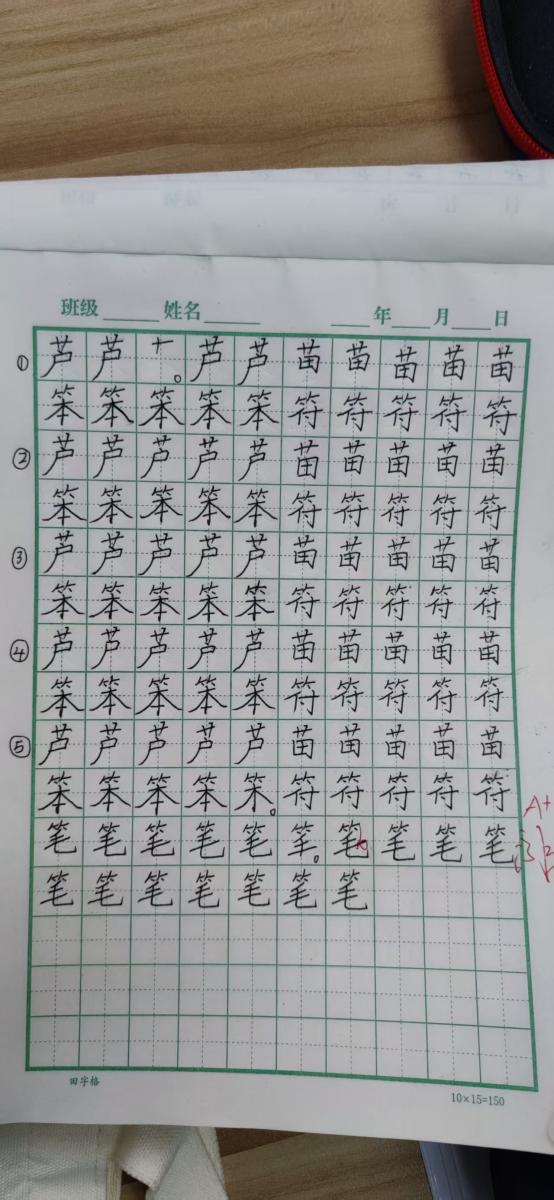 班级 姓名 年 月 日
① 芦 芦 芦 芦 苗 苗 苗 苗 苗
笨 笨 笨 笨 笨 符 符 符 符 符
② 芦 芦 芦 芦 芦 苗 苗 苗 苗 苗
笨 笨 笨 笨 笨 符 符 符 符 符
③ 芦 芦 芦 芦 芦 苗 苗 苗 苗 苗
笨 笨 笨 笨 笨 符 符 符 符 符
④ 芦 芦 芦 芦 芦 苗 苗 苗 苗 苗
笨 笨 笨 笨 笨 符 符 符 符 符
⑤ 芦 芦 芦 芦 芦 苗 苗 苗 苗 苗
笨 笨 笨 笨 符 符 符 符 符
A+
笔 笔 笔 笔 笔 笔 笔 笔 笔
笔 笔 笔 笔 笔 笔 笔
田字格 10×15=150